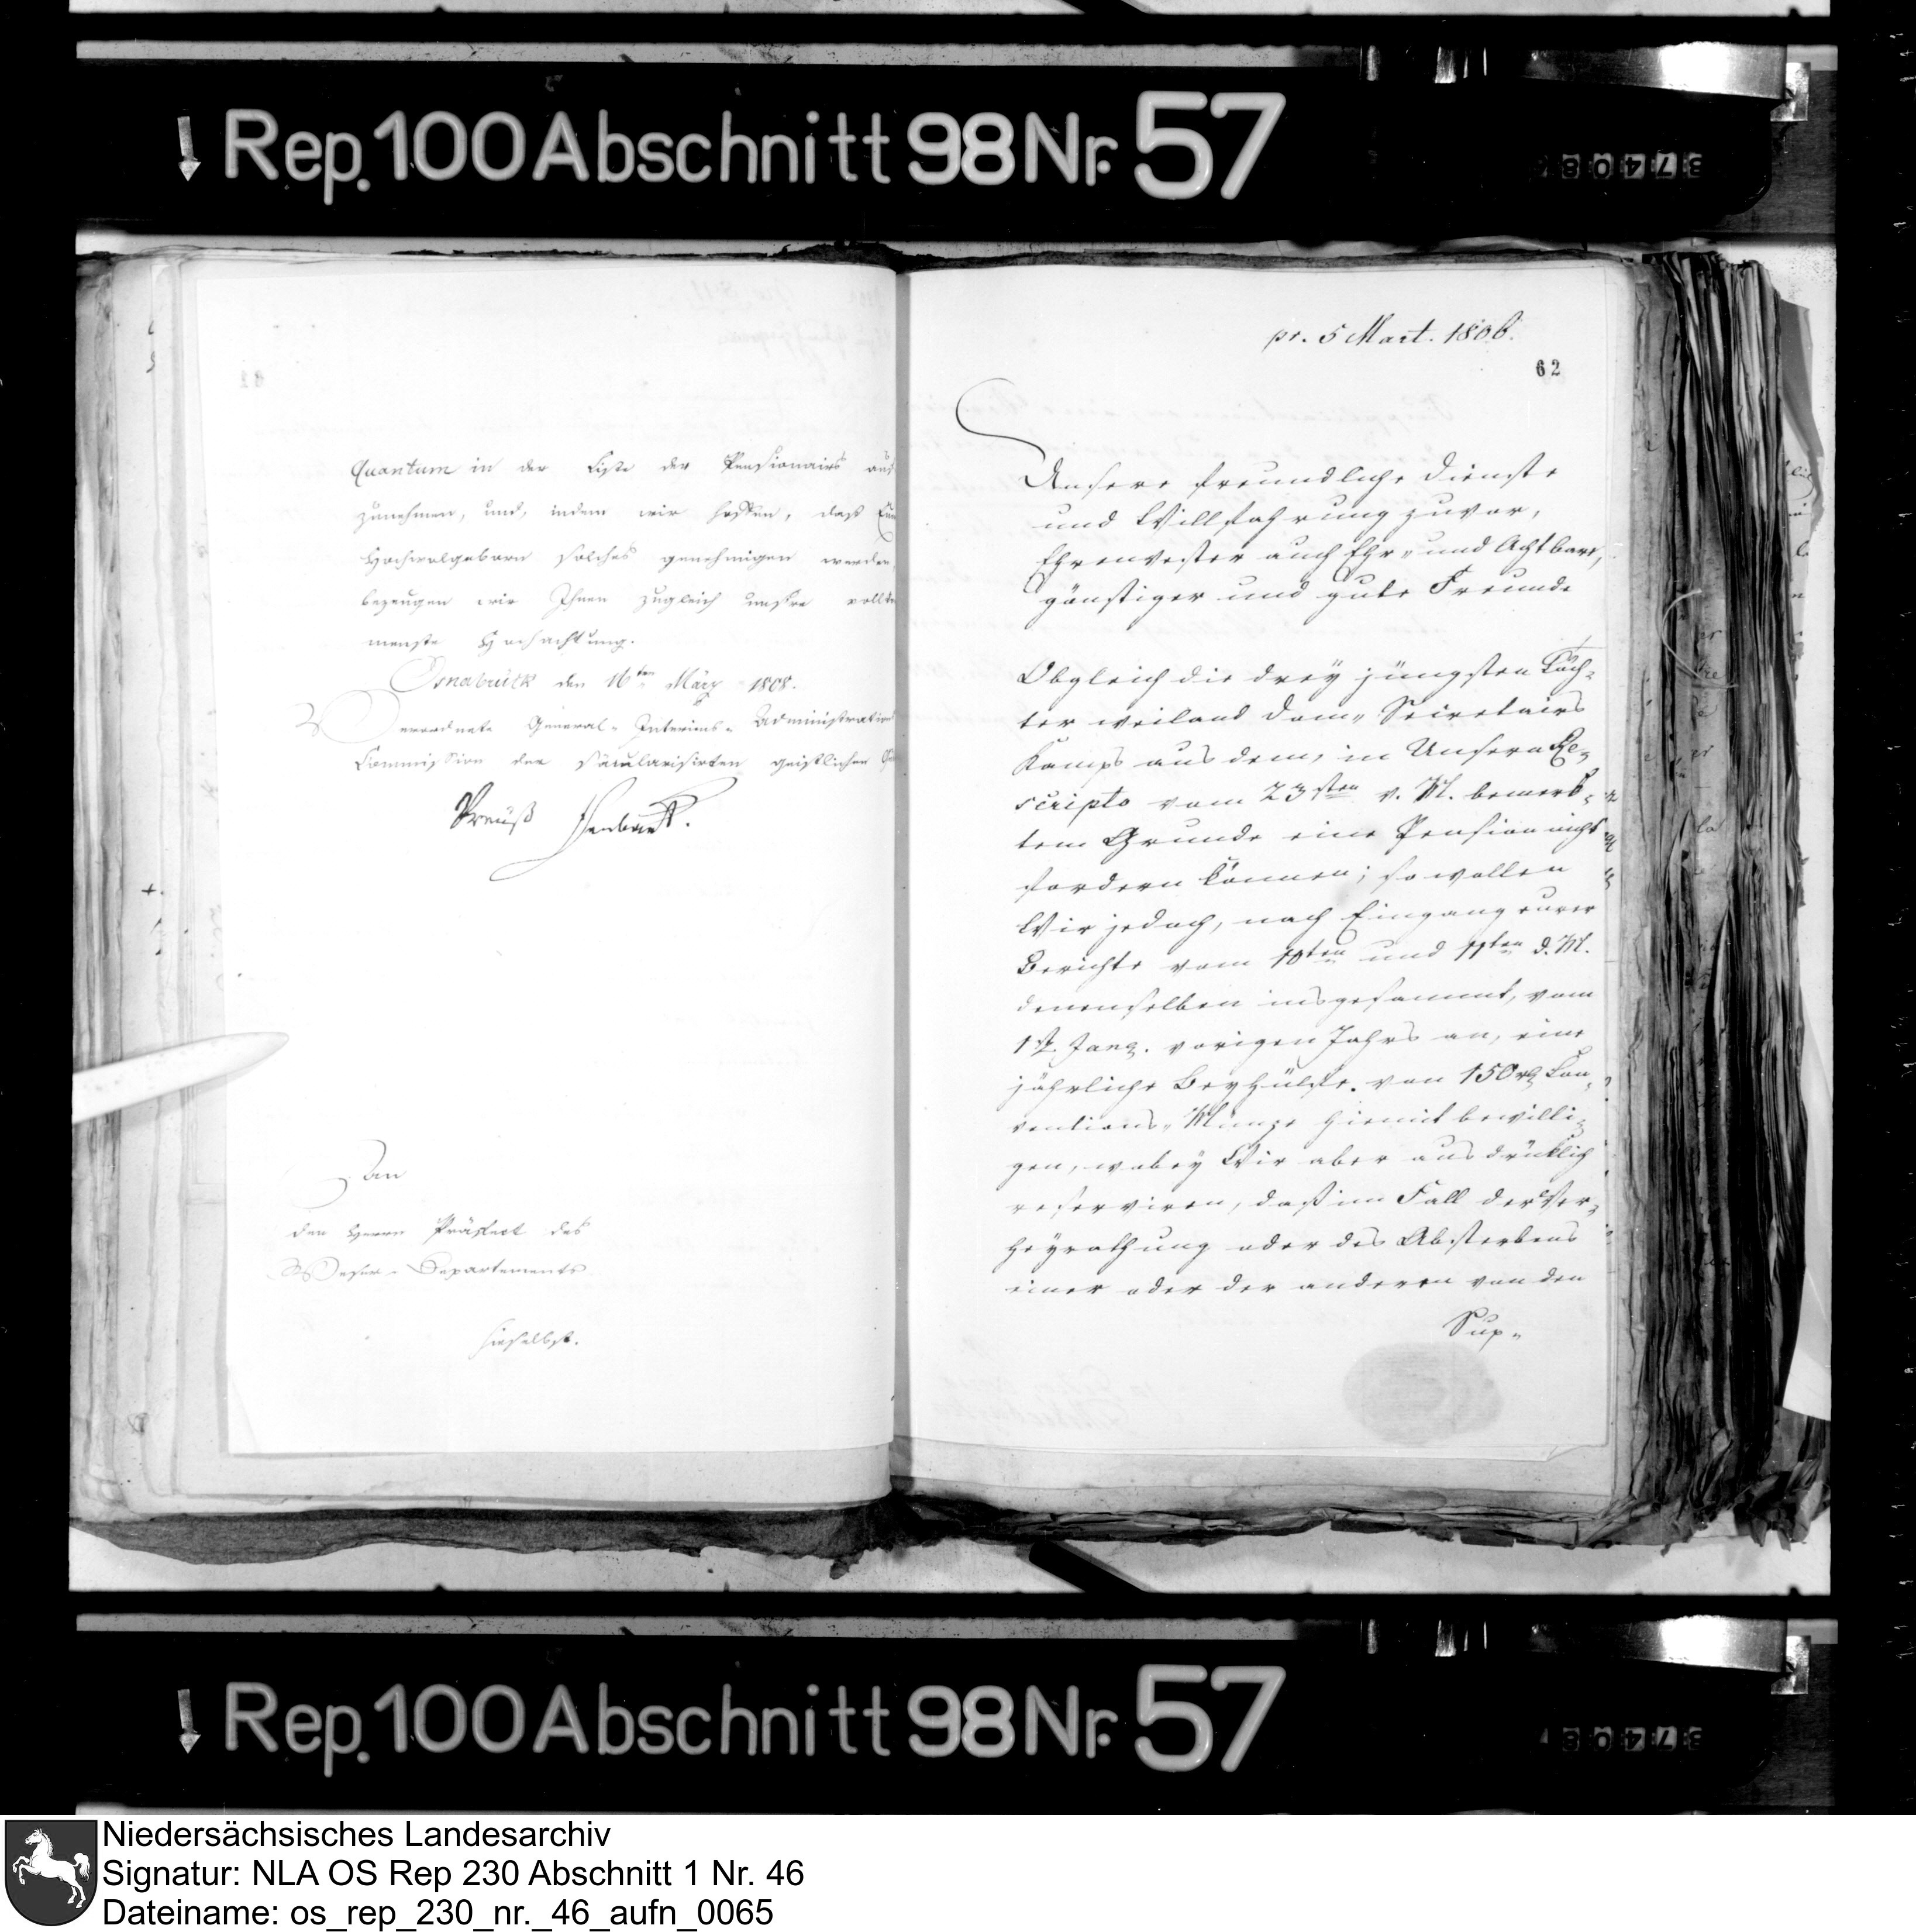 Rep. 100 Abschnitt 98 Nr. 57
37408
Quantum in der Liste der Pensionairs auf
zunehmen, und, indem wir hoffen, daß Eure
Hochwolgeborn solches genehmigen werden,
bezeugen wir Ihnen zugleich unsre vollko
menste Hochachtung.
Osnabrück den 16ten März 1808.
Verordnete General-Interims-Administrations
Commission der säcularisirten geistlichen
Preuß
An
den Herrn Präfect des
Weser-Departements
hieselbst.
pr. 5 Mart. 1806.
62
Unsere freundliche Dienste
und Willfahrung zuvor,
Ehrenvester auch Ehr- und Achtbare,
günstiger und gute Freunde
Obgleich die drey jüngsten Töch-
ter weiland Dom-Secretairs
Kamps aus dem, in Unserm Re-
scripto vom 23sten v. M. bemerk-
tem Grunde eine Pension nicht
fordern können; so wollen
Wir jedoch, nach Eingang eurer
Berichte vom 10ten und 11ten d. M.
denenselben insgesammt, vom
1st. Jan. vorigen Jahrs an, eine
jährliche Beyhülfe von 150 rt Con-
ventions-Münze hiemit bewilli-
gen, wobey Wir aber ausdrüklich
reserviren, daß im Fall der Ver-
heyrathung oder des Absterbens
einer oder der anderen von den
Sup-
Rep. 100 Abschnitt 98 Nr. 57
37408
Niedersächsisches Landesarchiv
Signatur: NLA OS Rep 230 Abschnitt 1 Nr. 46
Dateiname: os_rep_230_nr._46_aufn_0065